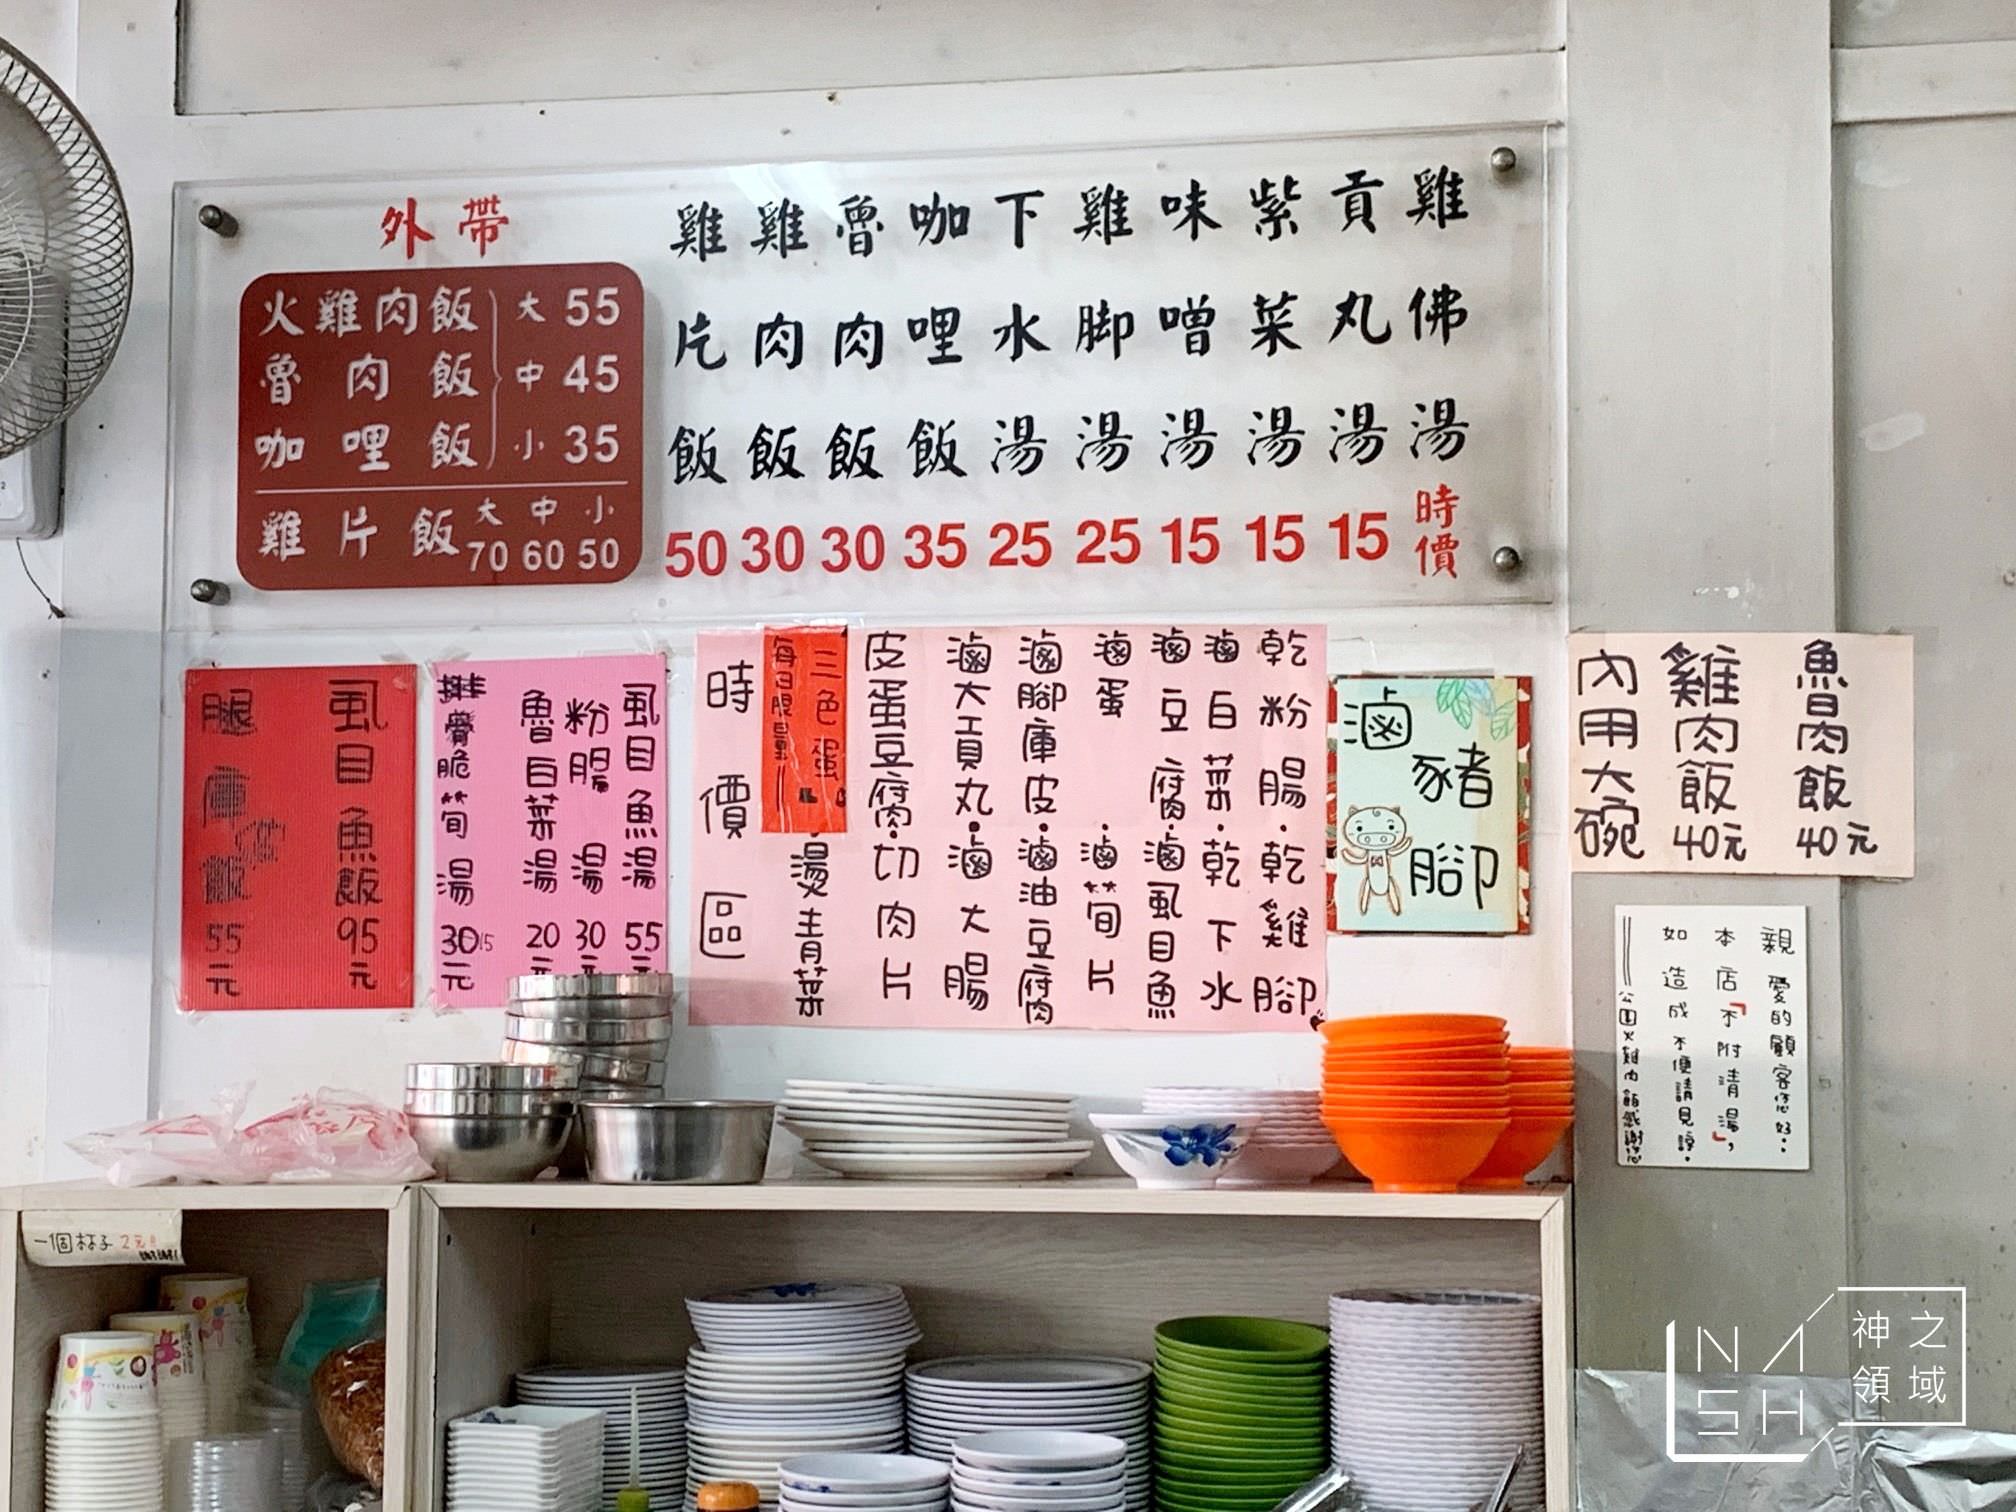 外帶
火雞肉飯 大 55
魯肉飯 中 45
咖哩飯 小 35
雞片飯 大 中 小
70 60 50
雞片飯 50
雞肉飯 30
魯肉飯 30
咖哩飯 35
下水湯 25
雞脚湯 25
味噌湯 15
紫菜湯 15
貢丸湯 15
雞佛湯 時價
虱目魚飯 95元
腿庫飯 55元
虱目魚湯 55元
粉腸湯 30元
魯白菜湯 20元
排骨脆筍湯 30元
乾粉腸・乾雞腳
滷白菜・乾下水
滷豆腐・滷虱目魚
滷蛋・滷筍片
滷腳庫皮・滷油豆腐
滷大貢丸・滷大腸
皮蛋豆腐・切肉片
三色蛋
每日限量
燙青菜
時價區
滷豬腳
魯肉飯 40元
雞肉飯 40元
內用大碗
親愛的顧客您好。
本店「不附清湯」,
如造成不便請見諒。
公園火雞肉飯感謝您
一個杯子 2元
NASH
神之領域